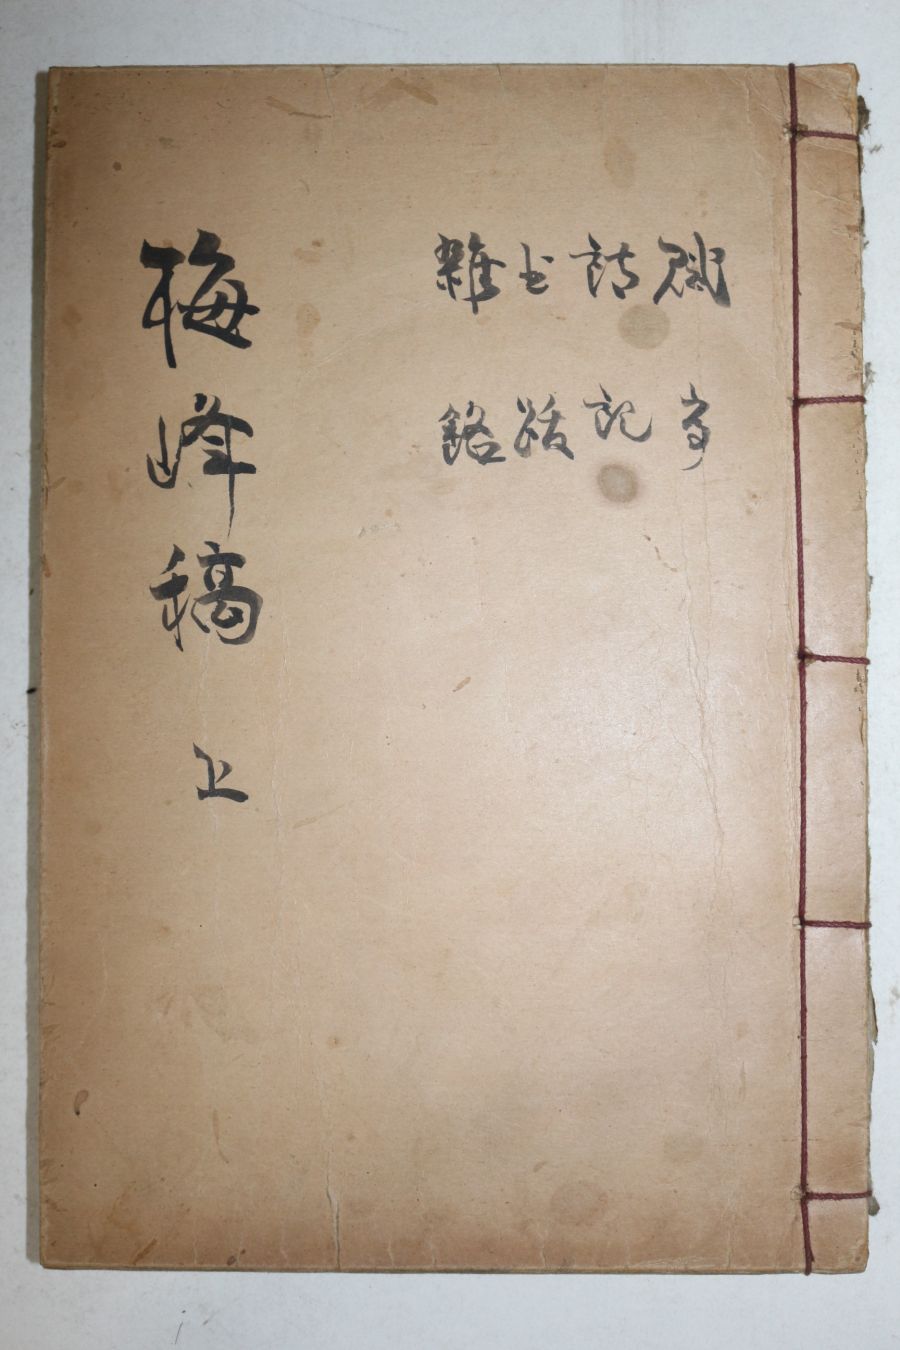 賦序
詩記
書跋
雜銘
梅峰稿 上